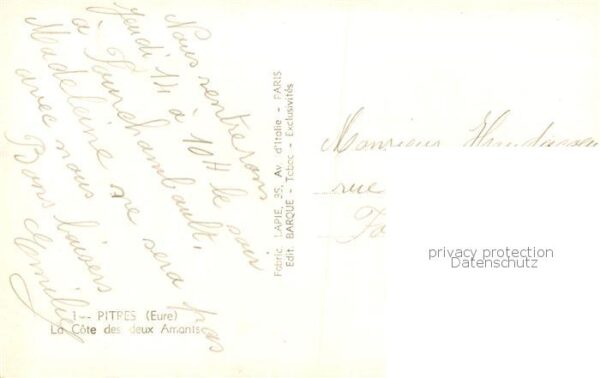 Nous rentrerons
jeudi 14 à 10H le soir
à Fourchambault,
Madeleine ne sera pas
avec nous
Bons baisers
Emilie
Fabric. LAPIE, 35, Av. d'Italie - PARIS
Edit. BARQUE - Tabac - Exclusivités
1 -- PITRES (Eure)
La Côte des deux Amants
Monsieur
rue
privacy protection
Datenschutz